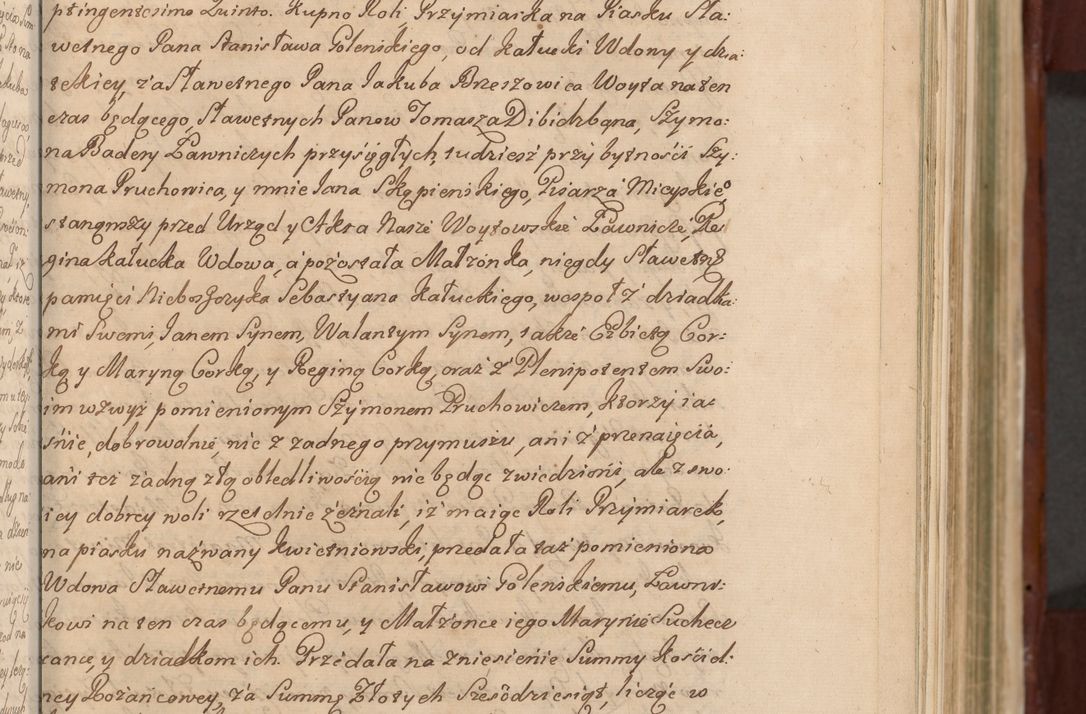 ptingentesimo Quinto. Kupno Roli Przymiarka na Piasku Sła:
wetnego Pana Stanisława Golenskiego, od Kałucki Wdowy y dzia:
tekiey, za Sławetnego Pana Jakuba Brzeszowica Woyta na ten
czas będącego, Sławetnych Panow Tomasza Dibidzbąna, Szymo:
na Badery Ławniczych przysięgłych, tudziesz przy bytnośći Szy:
mona Pruchowica, y mnie Jana Skąpienskiego, Pisarza Mieyskiego
stanąwszy przed Urząd y Akta Nasze Woytowskie Ławnicze, Re
gina Kałucka Wdowa, a pozostała Małzonka, niegdy Sławetne
pamięci Niebosgoryka Sebastyana Kałuckiego, wespoł z dziadka:
mi Swemi, Janem Synem, Walantym Synem, także Elżbietą Cor:
ką y Maryną Corką, y Reginą Corką, oraz z Plenipotentem Swo:
im wzwyż pomienionym Szymonem Pruchowiczem, ktorzy ia:
śnie, dobrowolnie, nic z zadnego przymuszu, ani z przenaięcia,
ani też żadną złą obłedliwością nie będąc zwiedzioni, ale z swo:
iey dobrey woli rzetelnie zeznali, iż maiąc Roli Przymiarek,
na piasku nazwany Kwietniowski, przedała taż pomieniona
Wdowa Sławetnemu Panu Stanisławowi Golenskiemu, Ławni:
kowi na ten czas będącemu, y Małżonce iego Marynie Suchece
rance, y dziadkom ich. Przedała na zniesienie Summy Kościel:
ney Rożańcowey, za Summę Złotych Sześćdziesiąt, licząc w